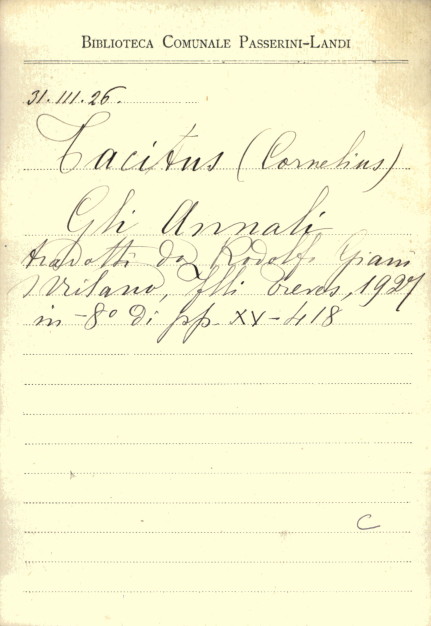 BIBLIOTECA COMUNALE PASSERINI-LANDI
31.III.26.
Tacitus (Cornelius)
Gli Annali
tradotti da Rodolfo Giani
Milano, Flli Treves, 1927
in-8° di pp. XV-418
C